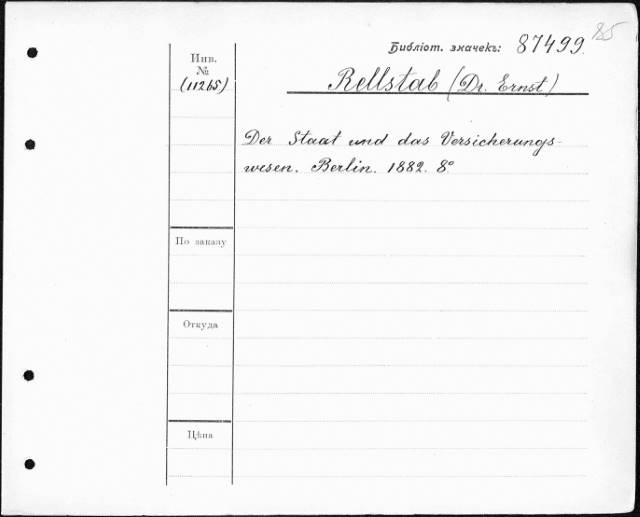 85
Библіот. значекъ: 87499.
Инв.
№
(11265)
Rellstab (Dr. Ernst)
Der Staat und das Versicherungs-
wesen. Berlin. 1882. 8º
По заказу
Откуда
Цѣна